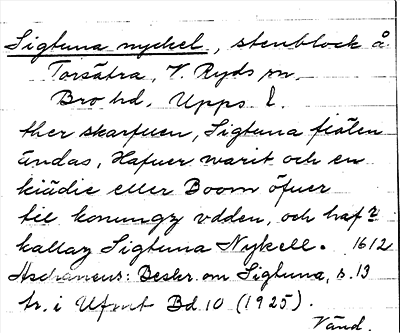 Sigtuna nyckel, stenblock å
Torsätra, V. Ryds sn,
Bro hd, Upps. l.
ther skarfuen, Sigtuna fiälen
ändas, Hafuer warit och en
kiädie eller Boom öfuer
til konungz vdden, och haf:r
kallaz Sigtuna Nykell. 1612
Aschaneus: Beskr. om Sigtuna, s. 13
tr. i Ufmt Bd. 10 (1925).
Vänd.